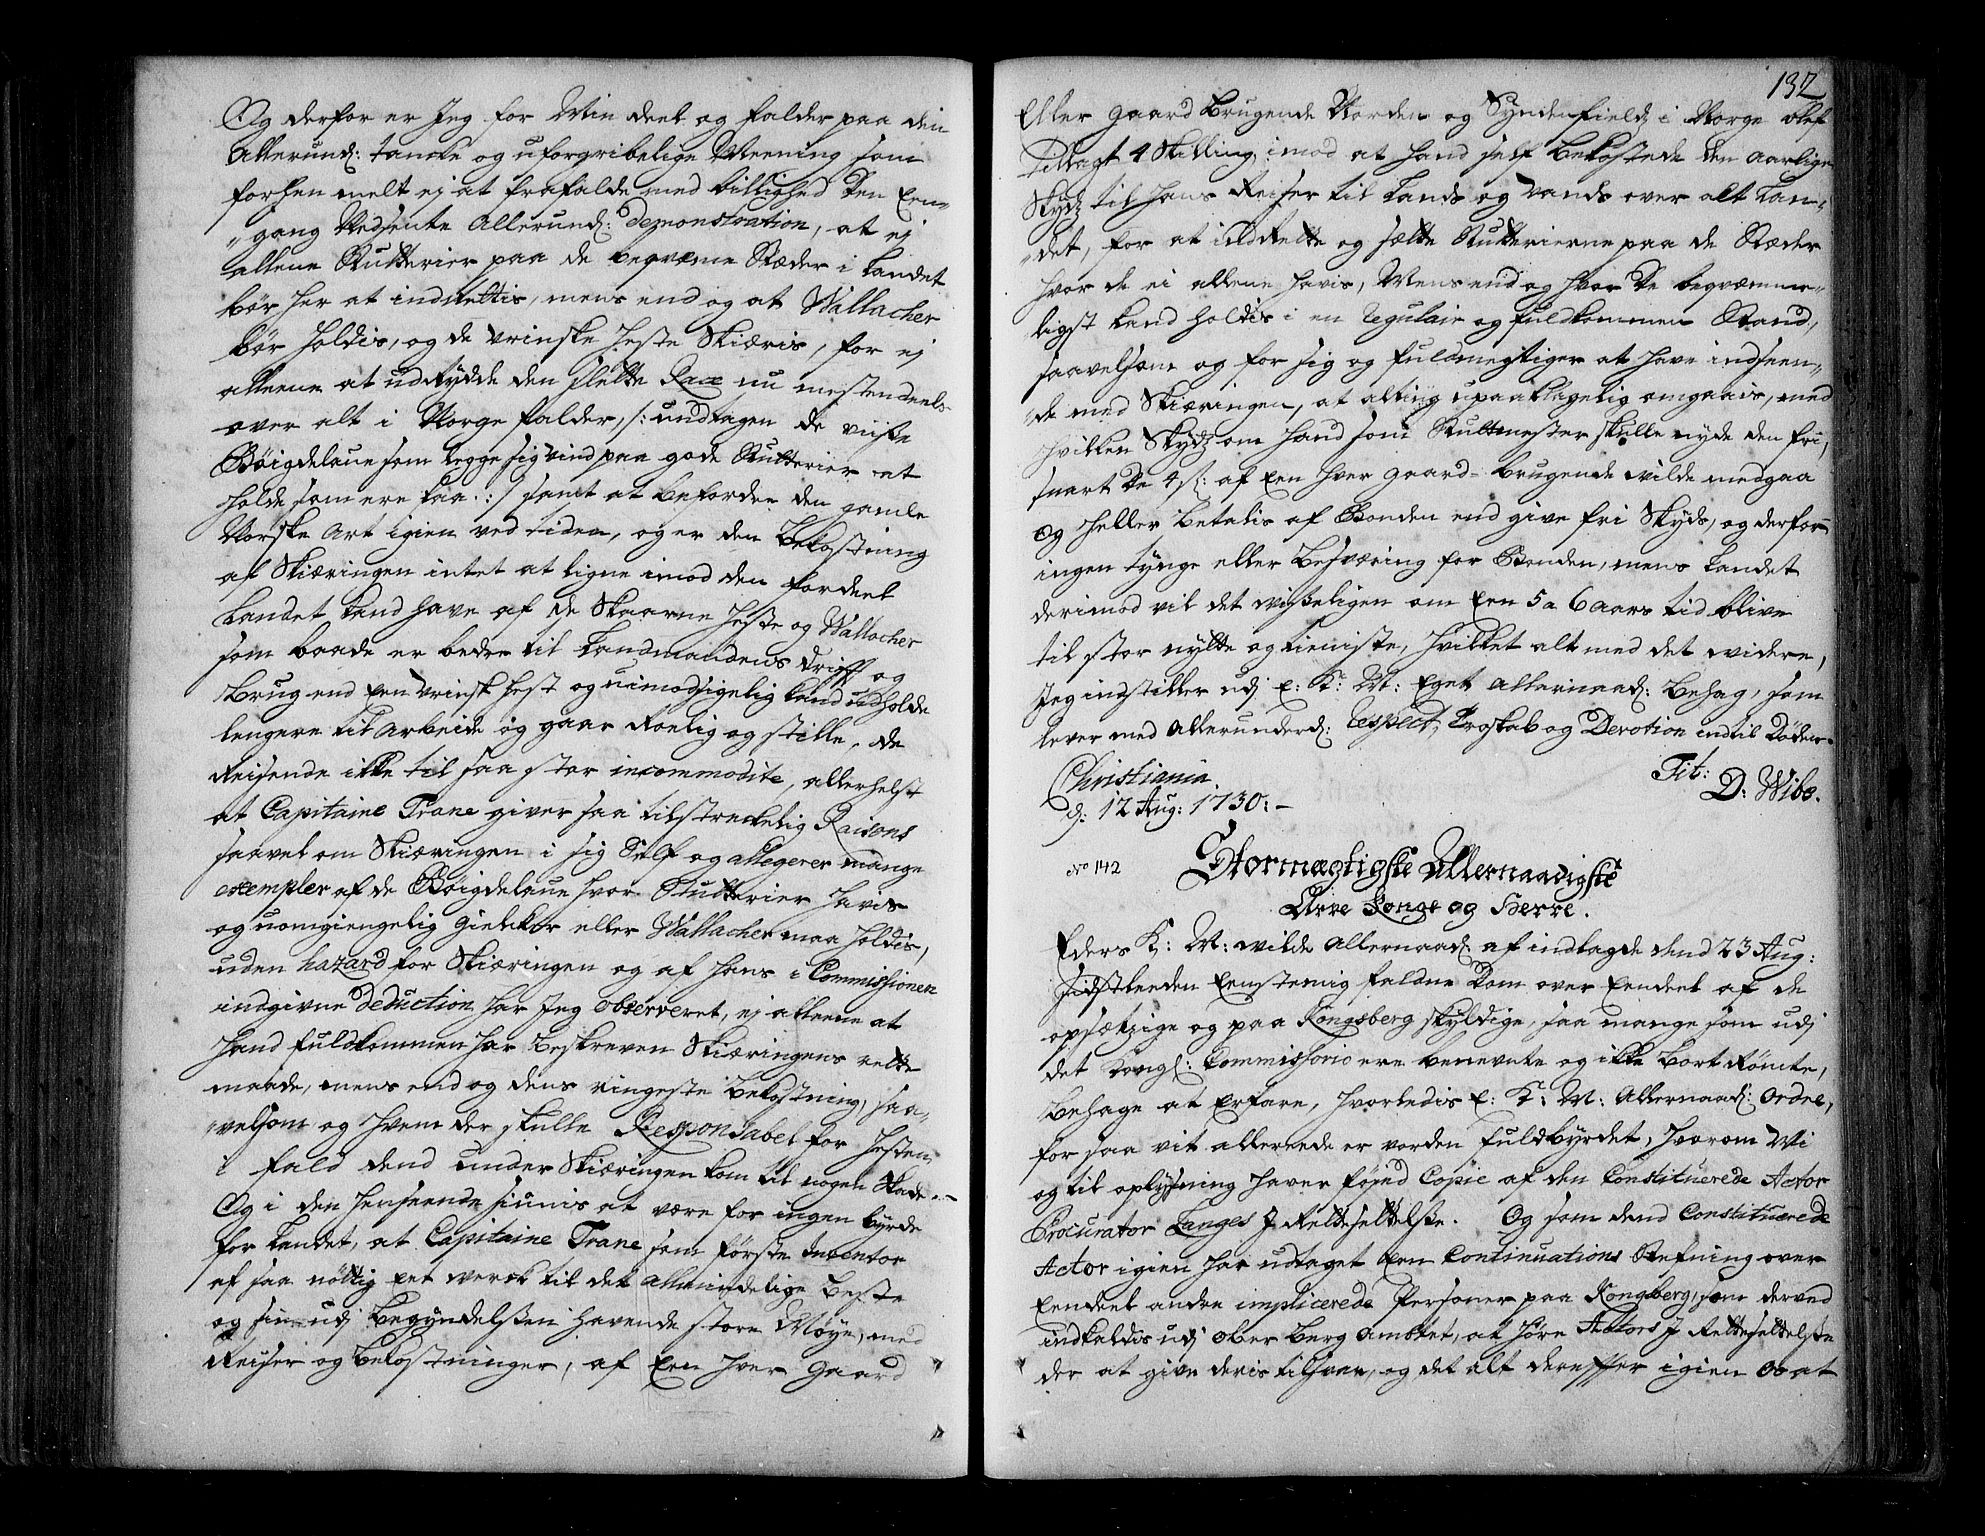 Og derfor er Jeg for Min deel og falder paa den
Allerund: tancke og uforgribelige Meening som
forhen melt ej at frafalde med billighed den Een„
„gang Nedsente Allerund: Demonstration, at ej
allene Stutterier paa de beqvæme Stæder i Landet
bør her at indrettis, mens end og at Wallacher
bør holdis, og de vrinske Heste Skiæris, for ej
alleene at udrydde den slette Race nu mestendeels
over alt i Norge falder, /: undtagen de visse
Bøigdelaue som legge sig vind paa gode Stutterier at
holde som ere faa :/ samt at befordre den gamle
Norske Art igien ved tiden, og er den Bekostning
af Skiæringen intet at ligne imod den fordeel
Landet kand have af de Skaarne Heste og Wallacher
som baade er bedre til Landmandens Drift og
Brug end een vrinsk Hest og uimodsigelig kand udholde
lengere til Arbeide og gaar Roelig og stille, de
Reisende ikke til saa stor incommodite, allerhelst
at Capitaine Trane giver saa tilstreckelig Raisons
saavel om Skiæringen i sig Self og allegerer mange
exempler af de Bøigdelaue hvor Stutterier havis
og uomgiengelig Gieldkør eller Wallacher maa holdis,
uden hazard for Skiæringen og af hans i Commissionen
indgivne Deduction har Jeg observeret, ej alleene at
hand fuldkommen har beskreven Skiæringens rette
maade, mens end og dens ringeste bekostning, saa„
„velsom og hvem der skulle Responsabel for Hesten,
i fald dend under Skiæringen kom til nogen Skade.
Og i den henseende siunis at være for ingen byrde
for Landet, at Capitaine Trane som første Inventor
af saa nøttig eet werck til det allmindelige Beste
og sin udj Begyndelsen havende store Møye, med
Reiser og bekostninger, af Een hver Gaard
132
Eller Gaard Brugende Norden og Syndenfields i Norge blef
Tillagt 4 Skilling, imod at hand self bekostede den aarlige
Skydz til hans Reiser til Lands og Vands over alt Lan„
„det, for at indrette og sætte Stutterierne paa de Stæder
hvor de ei allene havis, Mens end og hvor de beqvæmme„
ligst kand holdis i en regulair og fuldkommen Stand,
saavelsom og for sig og fuldmegtiger at have indseen„
„de med Skiæringen, at alting upaaklagelig omgaais, med
hvilken Skydz om hand som Stutmester skulle nyde den fri,
snart de 4 s: af Een hver gaard-brugende wilde medgaa
og heller betalis af Bonden end give fri Skyds, og derfor
ingen tynge eller besværing for Bonden, mens Landet
derimod vil det wisseligen om Een 5 a 6 aars tid blive
til stor nytte og tieniste, hvilket alt med det widere,
Jeg indstiller udj E: K: M: Eget Allernaad: behag, som
lever med Allerunderd: respect, troskab og Devotion indtil Døden
Christiania
d: 12 Aug: 1730:-
Tit:
D: Wibe.
No 142
Stormægtigste Allernaadigste
Arve Konge og Herre.
Eders K: M: wilde Allernaad: af indlagde dend 23 Aug:
sidstleeden Eenstemig faldne Dom over Eendeel af de
opsætzige og paa Kongsberg skyldige, saa mange som udj
det Kongl: Commissorio ere benevnte og ikke bort Rømte,
behage at erfare, hvorledis E: K: M: Allernaad: Ordre,
for saa vit allerede er vorden fuldbyrdet, hvorom Wi
og til oplysning haver føyed Copie af den Constituerede Actor
Procurator Langes J Rettesettelse. Og som dend Constituerede
Actor igien har udtaget Een Continuations Stefning over
Eendeel andre implicerede Personer paa Kongsberg, som derved
indkaldis udj Ober berg Ambtet, at høre Actors J Rettesettelse
der at give deris tilsvar, og det alt dereffter igien os at